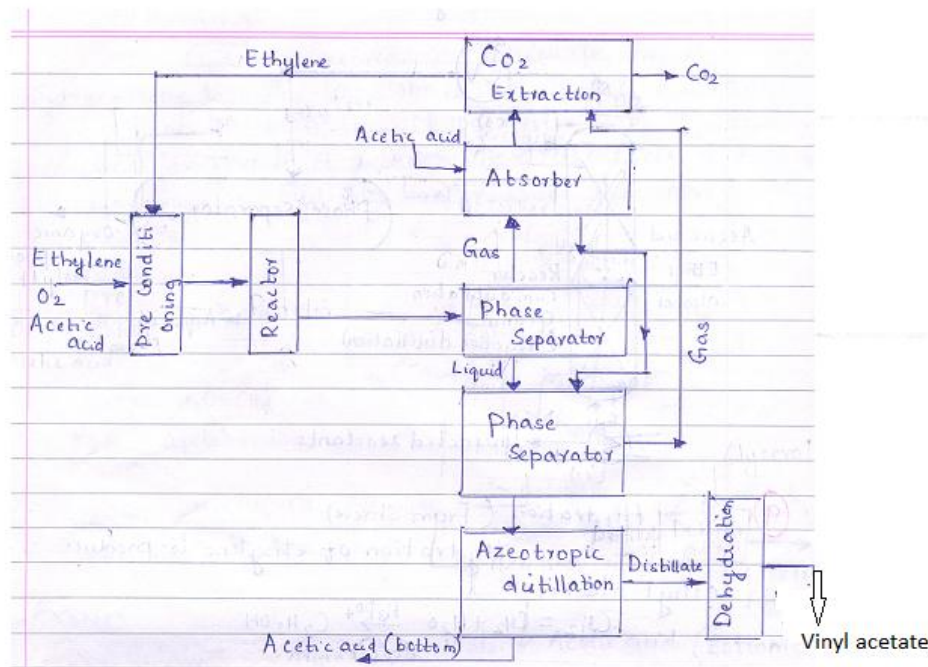 Ethylene
CO2
Extraction
CO2
Acetic acid
Absorber
Gas
Ethylene
O2
Acetic
acid
Pre Conditi
oning
Reactor
Phase
Separator
Gas
Liquid
Phase
Separator
Azeotropic
distillation
Distillate
Dehydiation
Vinyl acetate
Acetic acid (bottom)